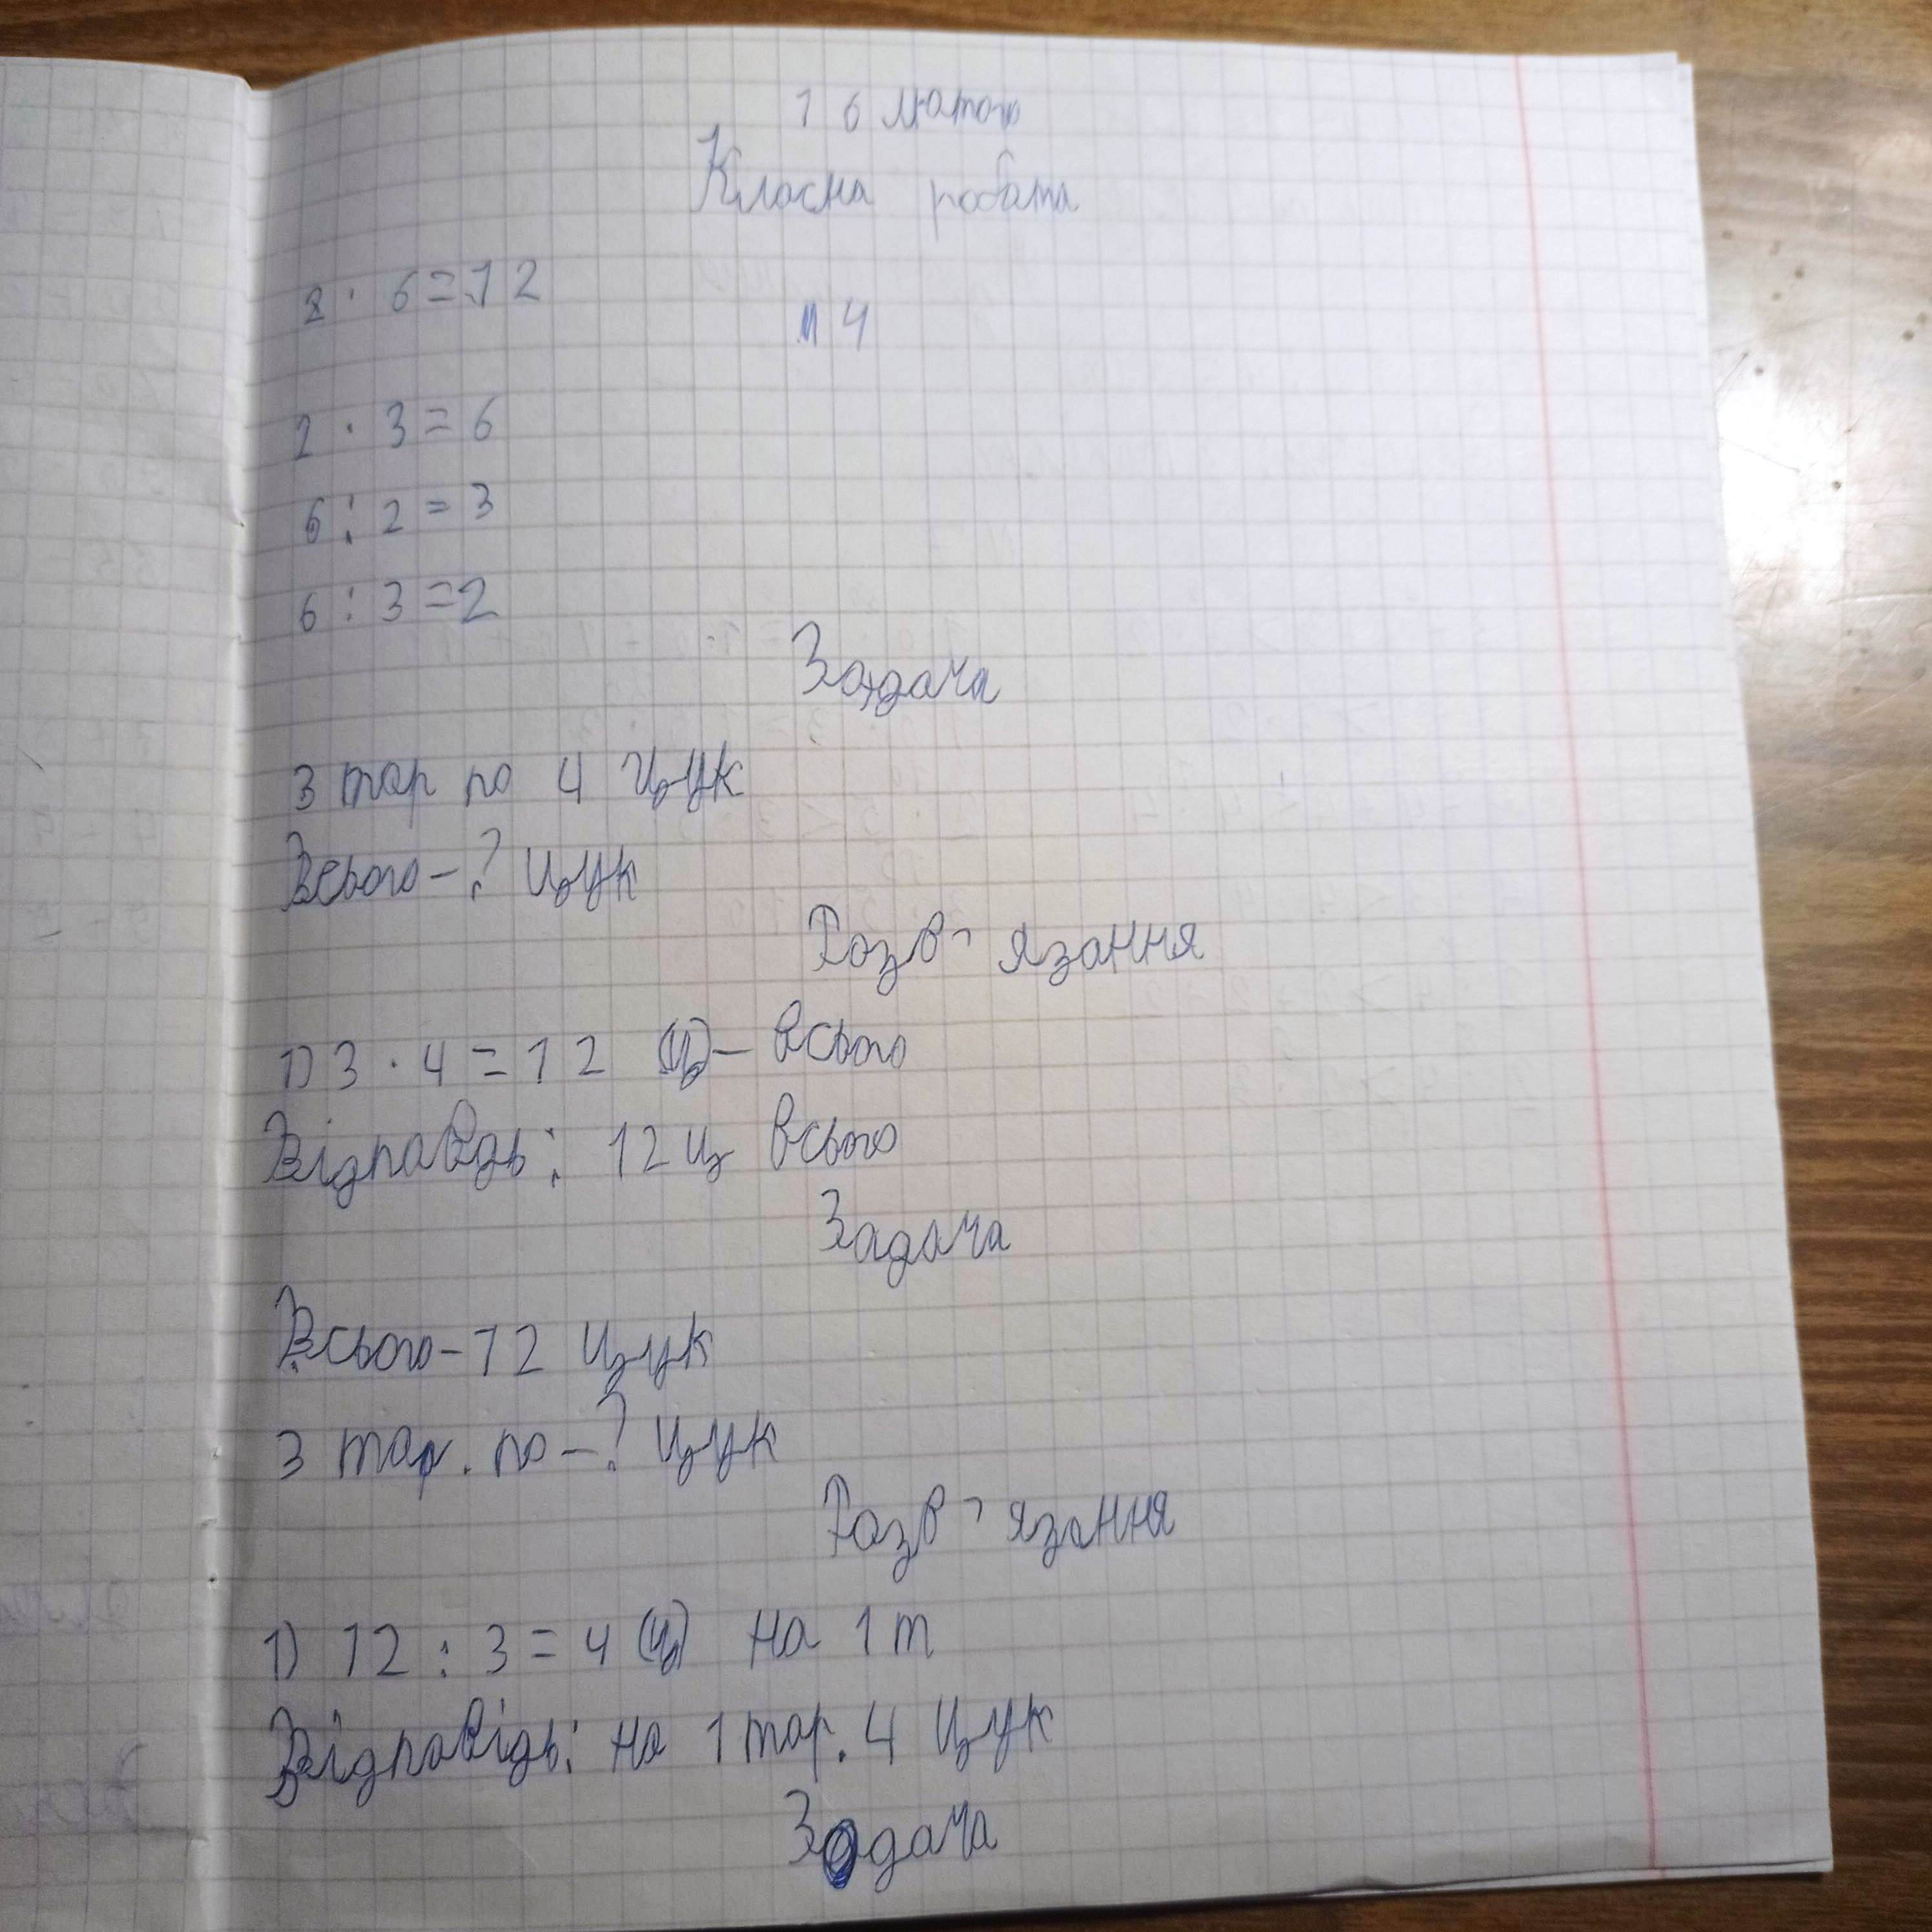 16 лютого
Класна робота
2 · 6 = 12
№ 4
2 · 3 = 6
6 : 2 = 3
6 : 3 = 2
Задача
3 тар по 4 цук
Всього - ? цук
Розв'язання
1) 3 · 4 = 12 (ц) - всього
Відповідь: 12 ц всього
Задача
Всього - 12 цук
3 тар. по - ? цук
Розв'язання
1) 12 : 3 = 4 (ц) на 1 т
Відповідь: на 1 тар. 4 цук
Задача